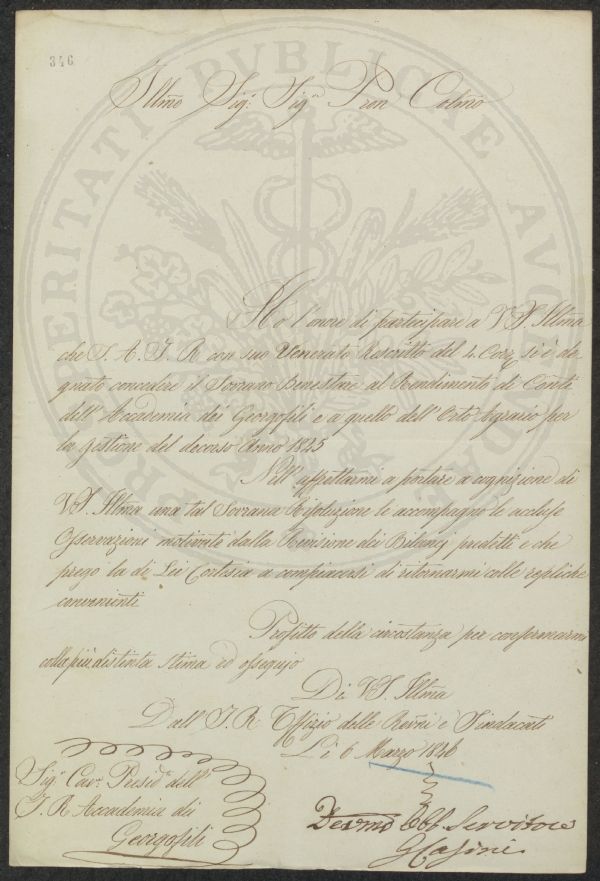 346
PROSPERITATI PUBLICAE AUGENDAE
Illmo Sig: Sig.r Pron Colmo
Ho l'onore di partecipare a V.S. Illma
che S. A. I. R. con suo Venerato Rescritto del 4. Corr.e si è de,
gnato concedere il Sovrano Benestare al Rendimento di Conti
dell'Accademia dei Georgofili e a quello dell'Orto Agrario per
la gestione del decorso Anno 1845
Nell'affrettarmi a portare a cognizione di
V.S. Illma una tal Sovrana Risoluzione le accompagno le accluse
Osservazioni motivate dalla Revisione dei Bilanci predetti e che
prego la di Lei Cortesia a compiacersi di ritornarmi colle repliche
convenienti.
Profitto della circostanza per confermarmi
colla più distinta stima ed ossequio
Di V.S. Illma
Dall'I. R. Uffizio delle Revni e Sindacati
Li 6 Marzo 1846
Sig.r Cav.e Presid.e dell'
I. R. Accademia dei
Georgofili
Devmo Obb Servitore
G Casini